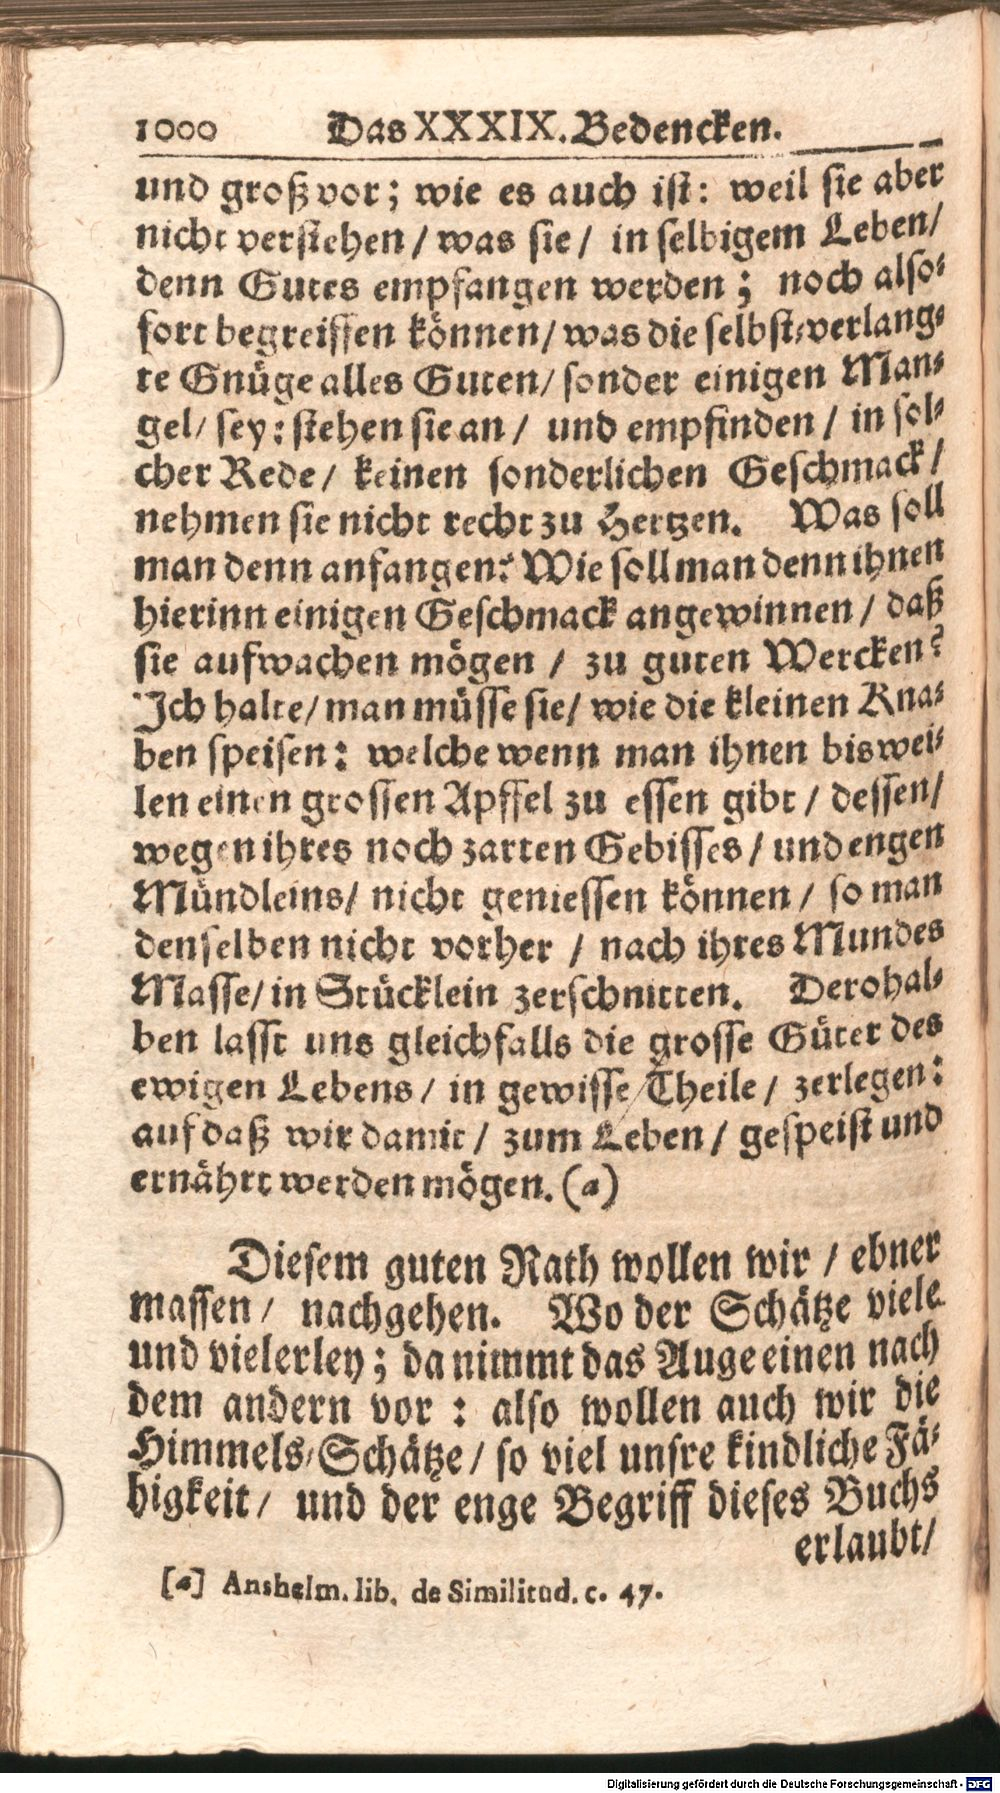 1000 Das XXXIX. Bedencken.
und groß vor; wie es auch ist: weil sie aber
nicht verstehen / was sie / in selbigem Leben/
denn Gutes empfangen werden; noch also-
fort begreiffen können/ was die selbst-verlang-
te Gnüge alles Guten/ sonder einigen Man-
gel/ sey: stehen sie an / und empfinden / in sol-
cher Rede / keinen sonderlichen Geschmack /
nehmen sie nicht recht zu Hertzen. Was soll
man denn anfangen? Wie soll man denn ihnen
hierinn einigen Geschmack angewinnen / daß
sie aufwachen mögen / zu guten Wercken?
Ich halte/ man müsse sie/ wie die kleinen Kna-
ben speisen: welche wenn man ihnen biswei-
len einen grossen Apffel zu essen gibt / dessen/
wegen ihres noch zarten Gebisses / und engen
Mündleins/ nicht geniessen können / so man
denselben nicht vorher / nach ihres Mundes
Masse/ in Stücklein zerschnitten. Derohal-
ben lasst uns gleichfalls die grosse Güter des
ewigen Lebens / in gewisse Theile / zerlegen:
auf daß wir damit / zum Leben / gespeist und
ernährt werden mögen. (a)
Diesem guten Rath wollen wir / ebner
massen / nachgehen. Wo der Schätze viele
und vielerley; da nimmt das Auge einen nach
dem andern vor : also wollen auch wir die
Himmels-Schätze / so viel unsre kindliche Fä-
higkeit / und der enge Begriff dieses Buchs
erlaubt/
[a] Anshelm. lib. de Similitud. c. 47.
Digitalisierung gefördert durch die Deutsche Forschungsgemeinschaft - DFG